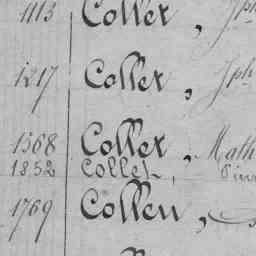 1113 Collet, Jph
1217 Collet, Jph
1368 Collet, Math
1852 Collet,
1769 Colleu,